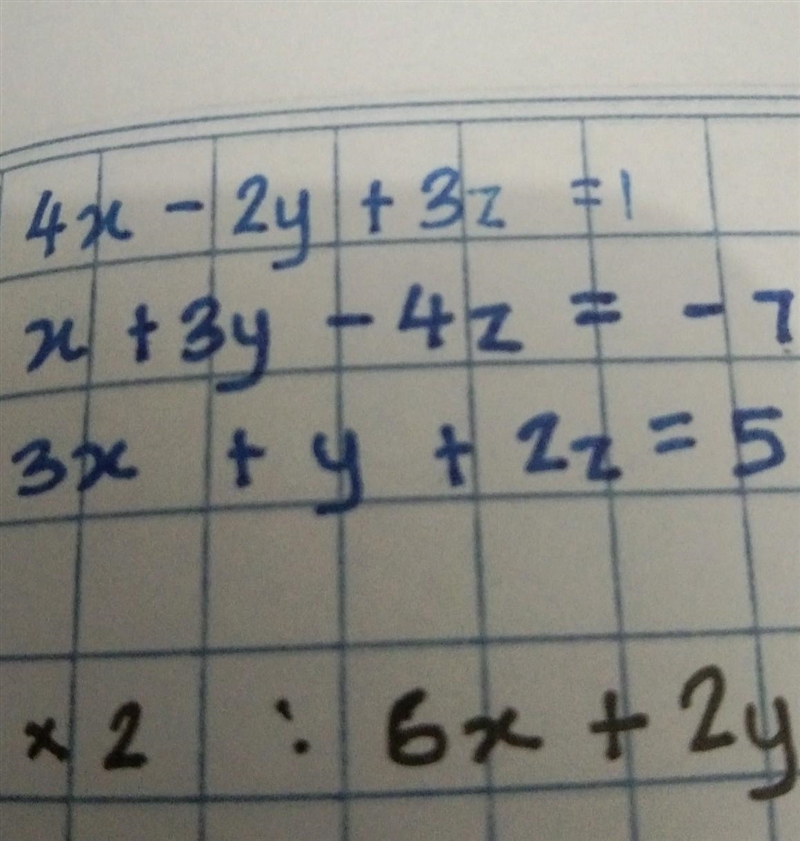 4x - 2y + 3z = 1
x + 3y - 4z = - 7
3x + y + 2z = 5
× 2 : 6x + 2y